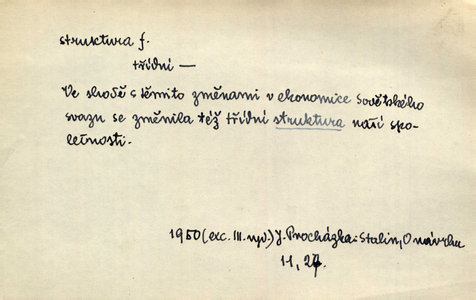 struktura f.
třídní —
Ve shodě s těmito změnami v ekonomice Sovětského
svazu se změnila též třídní struktura naší spo-
lečnosti.
1950 (exc. III. vyd.) J. Procházka: Stalin, O návrhu
11, 27.